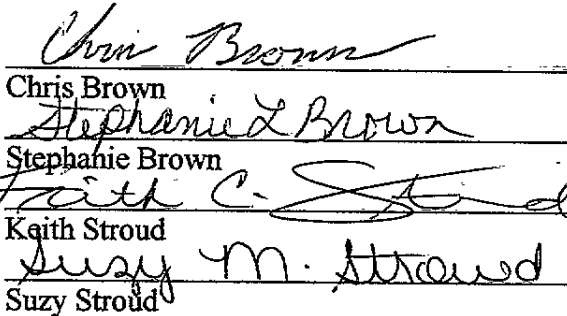 Chris Brown
Chris Brown
Stephanie L Brown
Stephanie Brown
Keith C. Stroud
Keith Stroud
Suzy M. Stroud
Suzy Stroud